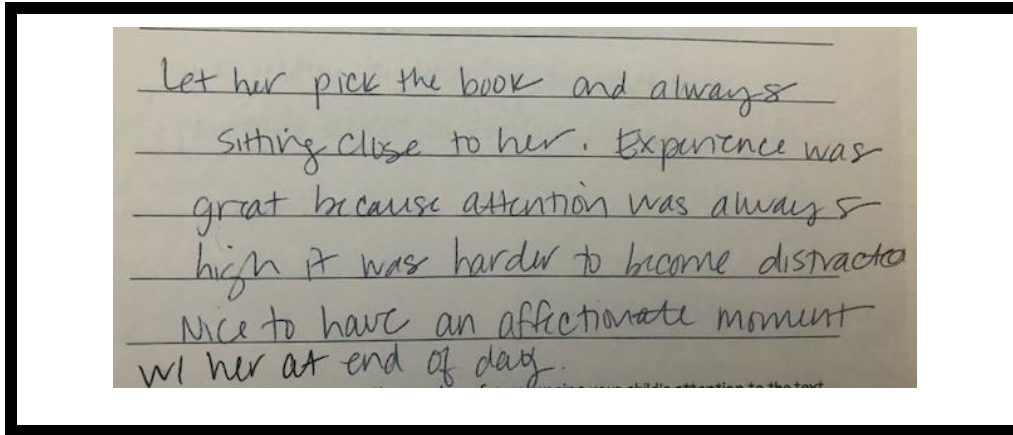 Let her pick the book and always
sitting close to her. Experience was
great because attention was always
high it was harder to become distracted
Nice to have an affectionate moment
w/ her at end of day.
your child's attention to the text